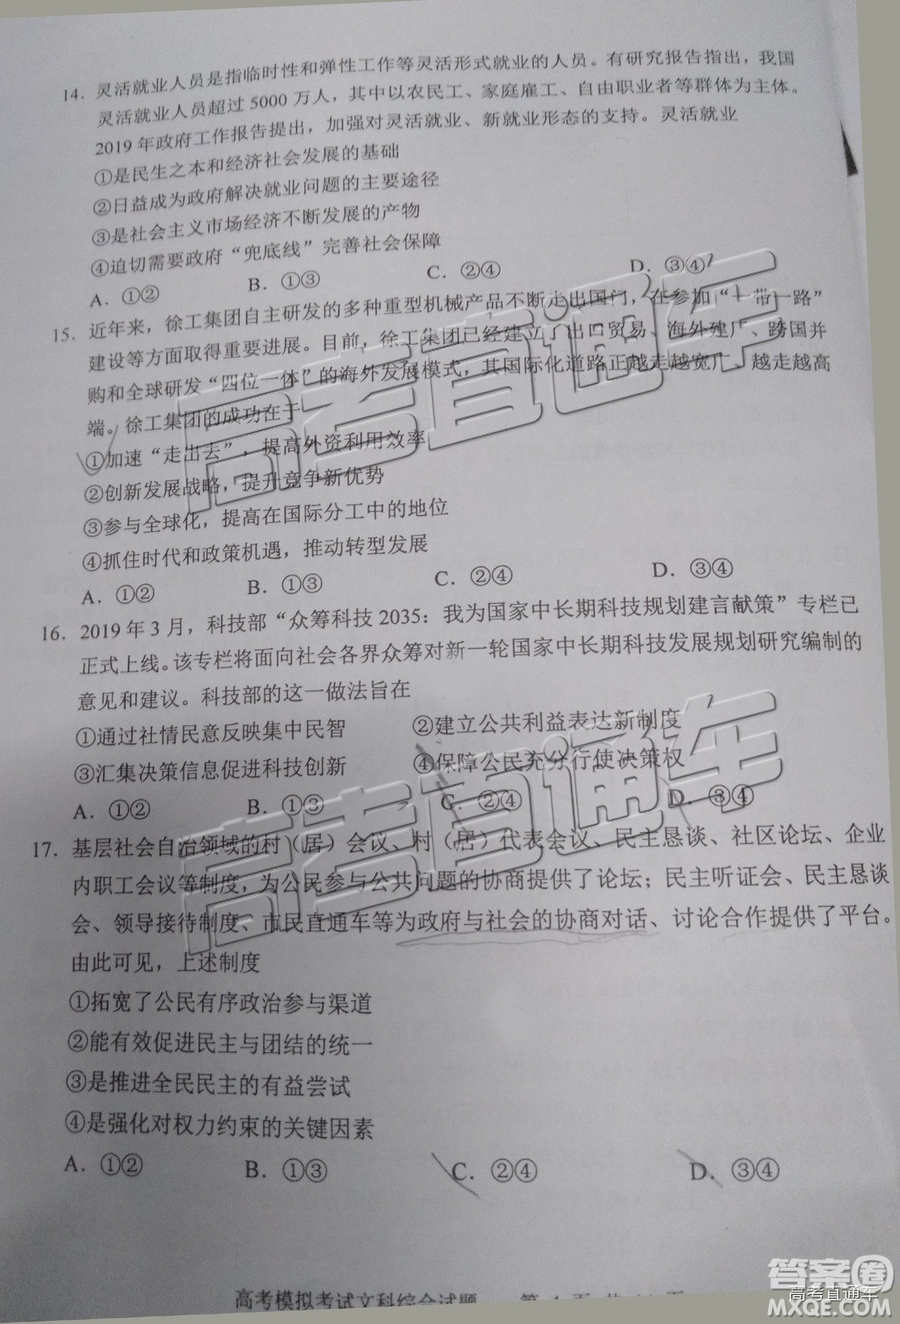 14．灵活就业人员是指临时性和弹性工作等灵活形式就业的人员。有研究报告指出，我国
灵活就业人员超过 5000 万人，其中以农民工、家庭雇工、自由职业者等群体为主体。
2019 年政府工作报告提出，加强对灵活就业、新就业形态的支持。灵活就业
①是民生之本和经济社会发展的基础
②日益成为政府解决就业问题的主要途径
③是社会主义市场经济不断发展的产物
④迫切需要政府“兜底线”完善社会保障
A．①② B．①③ C．②④ D．③④
15．近年来，徐工集团自主研发的多种重型机械产品不断走出国门，在参加“一带一路”
建设等方面取得重要进展。目前，徐工集团已经建立了出口贸易、海外建厂、跨国并
购和全球研发“四位一体”的海外发展模式，其国际化道路正越走越宽广、越走越高
端。徐工集团的成功在于
①加速“走出去”，提高外资利用效率
②创新发展战略，提升竞争新优势
③参与全球化，提高在国际分工中的地位
④抓住时代和政策机遇，推动转型发展
A．①② B．①③ C．②④ D．③④
16．2019 年 3 月，科技部“众筹科技 2035：我为国家中长期科技规划建言献策”专栏已
正式上线。该专栏将面向社会各界众筹对新一轮国家中长期科技发展规划研究编制的
意见和建议。科技部的这一做法旨在
①通过社情民意反映集中民智 ②建立公共利益表达新制度
③汇集决策信息促进科技创新 ④保障公民充分行使决策权
A．①② B．①③ C．②④ D．③④
17．基层社会自治领域的村（居）会议、村（居）代表会议、民主恳谈、社区论坛、企业
内职工会议等制度，为公民参与公共问题的协商提供了论坛；民主听证会、民主恳谈
会、领导接待制度、市民直通车等为政府与社会的协商对话、讨论合作提供了平台。
由此可见，上述制度
①拓宽了公民有序政治参与渠道
②能有效促进民主与团结的统一
③是推进全民民主的有益尝试
④是强化对权力约束的关键因素
A．①② B．①③ C．②④ D．③④
高考模拟考试文科综合试题
高考直通车
高考直通车
答案圈
高考直通车
MXQE.COM